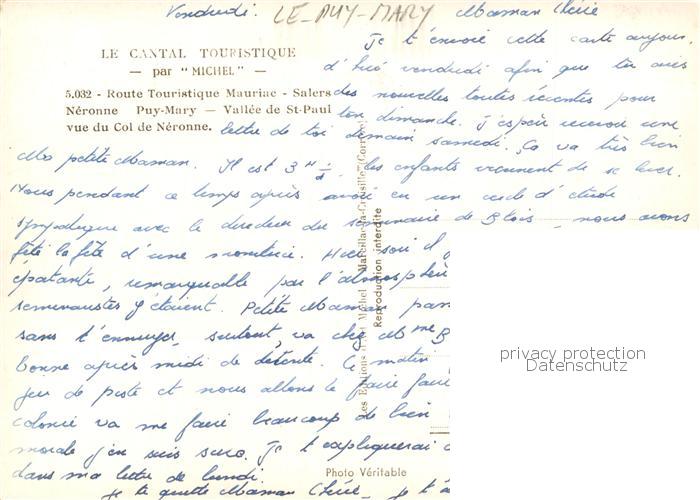 Vendredi. LE-PUY-MARY Maman Chérie
Je t'envoie cette carte aujour.
d'hui vendredi afin que tu aies
des nouvelles toutes récentes pour
ton dimanche. J'espère recevoir une
lettre de toi demain samedi. Ça va très bien
LE CANTAL TOURISTIQUE
— par "MICHEL" —
5.032 - Route Touristique Mauriac - Salers
Néronne Puy-Mary — Vallée de St-Paul
vue du Col de Néronne.
Ma petite Maman. Il est 3H ½, les enfants viennent de se lever.
Nous pendant ce temps après avoir eu un cercle d'étude
sympathique avec le directeur du séminaire de Blois, nous avons
fêté la fête d'une monitrice. Hier soir il
épatante, remarquable par l'atmosphère
séminaristes y étaient. Petite Maman
sans t'ennuyer, surtout, va chez Mme B
bonne après midi de détente. Ce matin
jeu de piste et nous allons le faire
colonie va me faire beaucoup de bien
morale j'en suis sûre. Je t'expliquerai
dans ma lettre de lundi.
Je te quitte Maman Chérie, je
Reproduction interdite
Photo Véritable
privacy protection
Datenschutz